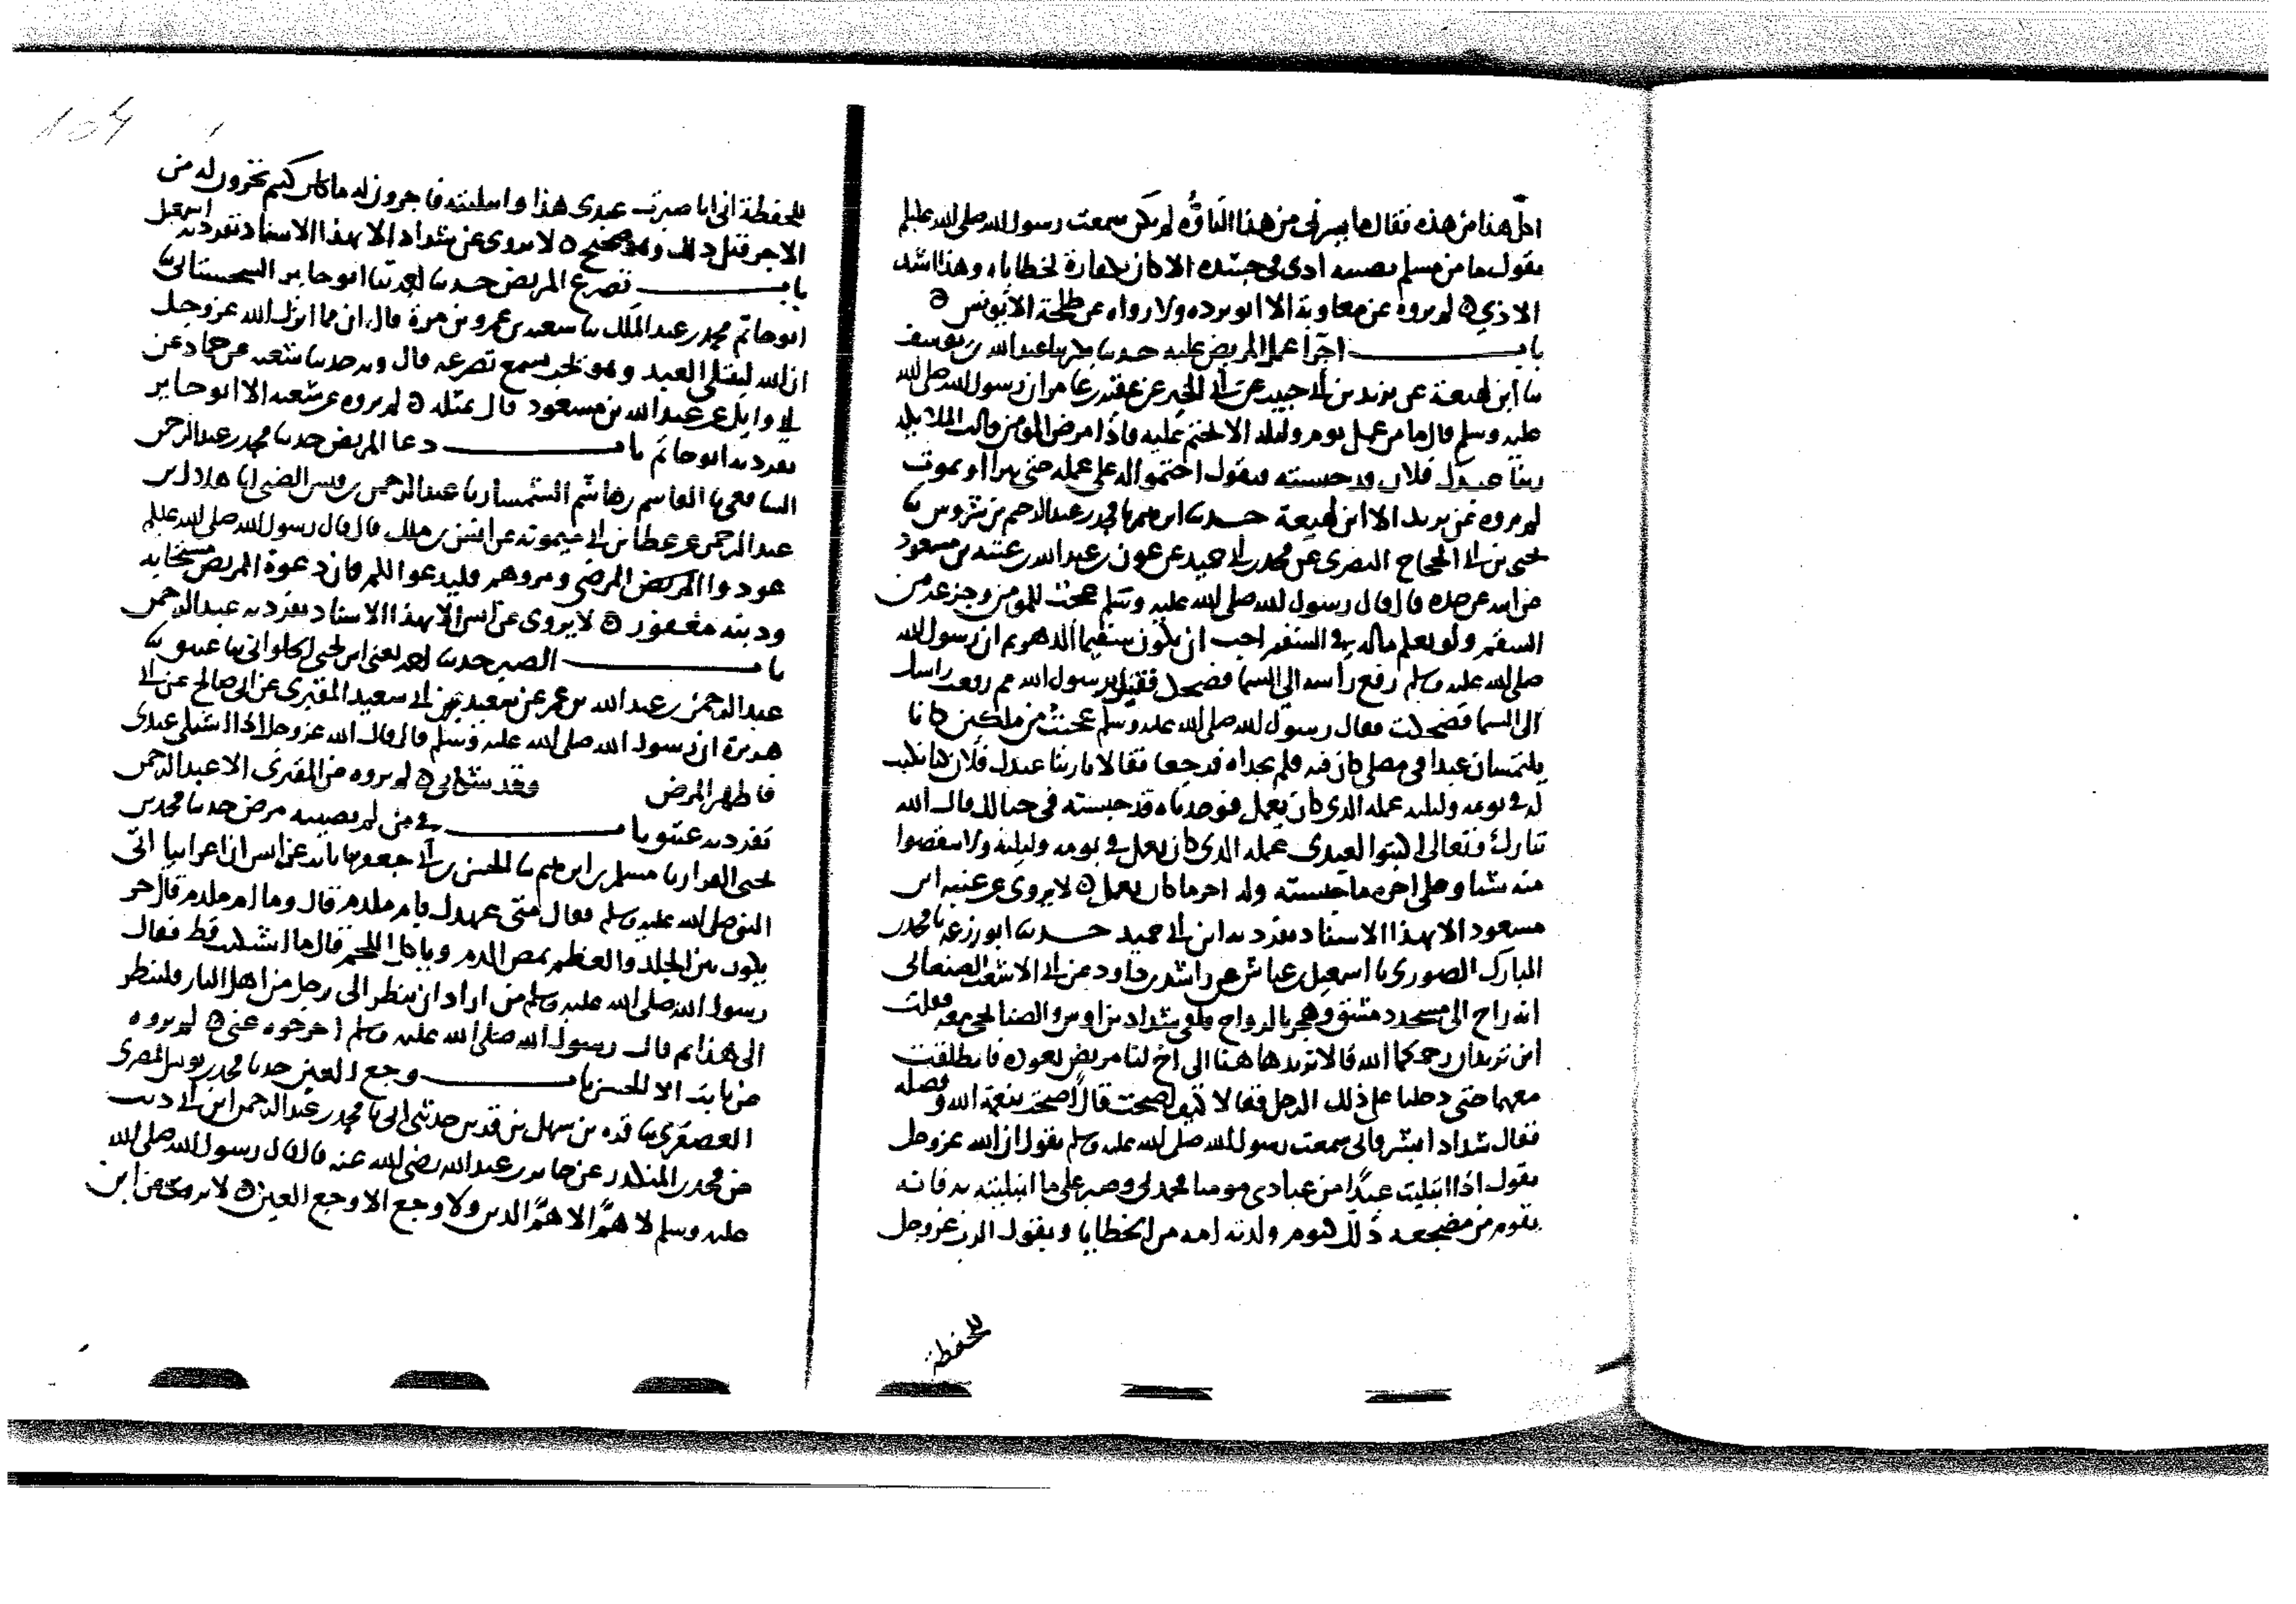 اجل هذا من هذه فقال ما يسرني من هذا التاوه لم يكن سمعت رسول الله صلى الله عليه وسلم
يقول ما من مسلم يصيبه اذى في جسده الا كان كفارة لخطاياه وهذا اشد
الاذي ه لم يروه عن معاوية الا ابو برده ولا رواه عن طلحة الا يونس ه
باب اجرا عمل المريض عليه حدثنا عبدالله بن يوسف
نا ابن لهيعة عن يزيد بن ابي حبيب عن ابي الخير عن عقبه بن عامر ان رسول الله صلى الله
عليه وسلم قال ما من عمل يوم وليله الا يختم عليه فاذا مرض المومن قالت الملايكه
ربنا عبدك فلان قد حبسته فيقول اختموا له على عمله حتى يبرا او يموت
لم يروه عن يزيد الا ابن لهيعة حدثنا ابرهيم نا محمد بن عبد الرحيم بن شروس نا
يحيى بن ابي الحجاج البصري عن محمد بن ابي حميد عن عون بن عبدالله بن عتبه بن مسعود
عن ابيه عن جده قال قال رسول الله صلى الله عليه وسلم عجبت للمومن وجزعه من
السقم ولو يعلم ماله في السقم احب ان يكون سقيما الدهر ثم ان رسول الله
صلى الله عليه وسلم رفع راسه الى السما فضحك فقيل يرسول الله مم رفعت راسك
الى السما فضحكت فقال رسول الله صلى الله عليه وسلم عجبت من ملكين كانا
يلتمسان عبدا في مصلى كان فيه فلم يجداه فرجعا فقالا يا ربنا عبدك فلان كنا نكتب
له في يومه وليلته عمله الذي كان يعمل فوجدناه قد حبسته في حبالك قال الله
تبارك وتعالى اكتبوا لعبدي عمله الذي كان يعمل في يومه وليلته ولا تنقصوا
منه شيا وعلي اجره ما حبسته وله اجر ما كان يعمل ه لا يروى عن عتبه ابن
مسعود الا بهذا الاسناد تفرد به ابن ابي حميد حدثنا ابو زرعه نا محمد بن
المبارك الصوري نا اسمعيل بن عياش عن راشد بن داود عن ابي الاشعث الصنعاني
انه راح الى مسجد دمشق وهجر بالرواح فلقي شداد بن اوس والصنابحي معه فقلت
اين تريدان رحمكما الله قالا نريد هاهنا الى اخ لنا مريض نعوده فانطلقت
معهما حتى دخلنا على ذلك الرجل فقالا كيف اصبحت قال اصبحت بنعمة الله وفضله
فقال شداد ابشر فاني سمعت رسول الله صلى الله عليه وسلم يقول ان الله عز وجل
يقول اذا ابتليت عبدا من عبادي مومنا فحمدني وصبر على ما ابتليته به فانه
يقوم من مضجعه ذلك كيوم ولدته امه من الخطايا ويقول الرب عز وجل
للحفظة
للحفظة اني انا صبرت عبدي هذا وابتليته فاجروا له ما كنتم تجرون له من
الاجر قبل ذلك وهو صحيح ه لا يروى عن شداد الا بهذا الاسناد تفرد به اسمعيل
باب تضرع المريض حدثنا احمد نا ابو حاتم السجستاني نا
ابو جابر محمد بن عبد الملك نا شعبه عن عمرو بن مرة قال ان مما انزل الله عز وجل
ان الله ليبتلي العبد وهو يحب يسمع تضرعه قال وبه حدثنا شعبه عن حماد عن
ابي وايل عن عبدالله بن مسعود قال بمثله ه لم يروه عن شعبه الا ابو جابر
تفرد به ابو حاتم باب دعا المريض حدثنا محمد بن عبد الرحمن
الشافعي نا القاسم بن هاشم السمسار نا عبد الرحمن بن قيس الضبي نا هلال بن
عبد الرحمن عن عطا بن ابي ميمونه عن انس بن ملك قال قال رسول الله صلى الله عليه وسلم
عودوا المرضى ومروهم فليدعوا لكم فان دعوة المريض مستجابه
وذنبه مغفور ه لا يروى عن انس الا بهذا الاسناد تفرد به عبد الرحمن
باب الصبر حدثنا احمد يعني ابن يحيى الحلواني نا عتيق نا
عبد الرحمن بن عبدالله بن عمر عن سعيد بن ابي سعيد المقبري عن ابي صالح عن ابي
هريرة ان رسول الله صلى الله عليه وسلم قال قال الله عز وجل اذا اشتكى عبدي
فاظهر المرض فقد شكاني ه لم يروه عن المقبري الا عبد الرحمن
تفرد به عتيق باب في من لم يصيبه مرض حدثنا محمد بن
يحيى القزاز نا مسلم بن ابرهيم نا الحسن بن ابي جعفر نا ثابت عن انس ان اعرابيا اتى
النبي صلى الله عليه وسلم فقال متى عهدك بام ملدم قال وما ام ملدم قال حر
يكون بين الجلد والعظم يمص الدم وياكل اللحم قال ما اشتكيت قط فقال
رسول الله صلى الله عليه وسلم من اراد ان ينظر الى رجل من اهل النار فلينظر
الى هذا ثم قال رسول الله صلى الله عليه وسلم اخرجوه عني ه لم يروه
عن ثابت الا الحسن باب وجع العين حدثنا محمد بن يونس المصري
العصفري نا قره بن سهل بن قره حدثني ابي نا محمد بن عبد الرحمن ابن ابي ذيب
عن محمد بن المنكدر عن جابر بن عبدالله رضي الله عنه قال قال رسول الله صلى الله
عليه وسلم لا هم الا هم الدين ولا وجع الا وجع العين ه لا يروى عن ابن